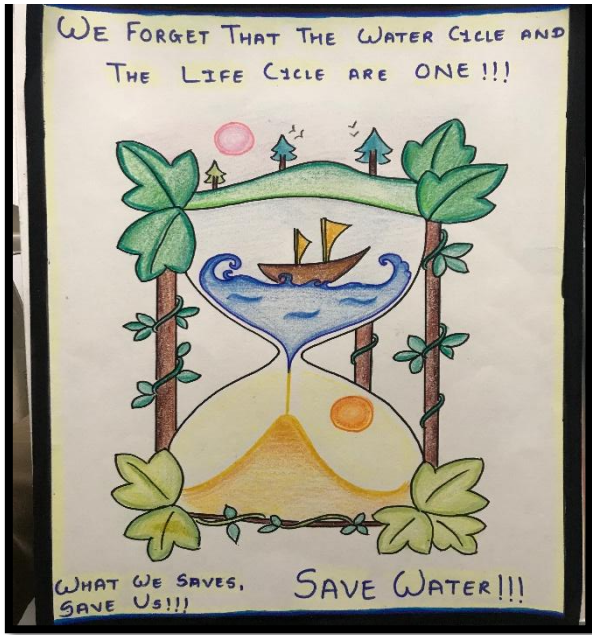 WE FORGET THAT THE WATER CYCLE AND
THE LIFE CYCLE ARE ONE!!!
WHAT WE SAVES,
SAVE US!!!
SAVE WATER!!!